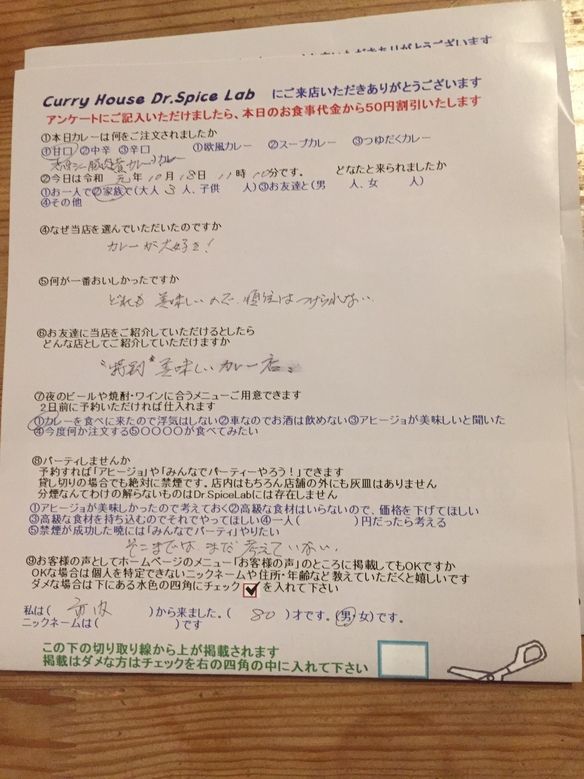 ただきありがとうございます
Curry House Dr.Spice Lab にご来店いただきありがとうございます
アンケートにご記入いただけましたら、本日のお食事代金から50円割引いたします
①本日カレーは何をご注文されましたか
①甘口 ②中辛 ③辛口 ①欧風カレー ②スープカレー ③つゆだくカレー
カレー
②今日は令和 元年 10月 18日 11時 10分です。 どなたと来られましたか
①お一人で②家族で(大人 3人、子供 人)③お友達と(男 人、女 人)
④その他
④なぜ当店を選んでいただいたのですか
カレーが大好き!
⑤何が一番おいしかったですか
どれも 美味しいので、順位はつけられない
⑥お友達に当店をご紹介していただけるとしたら
どんな店としてご紹介していただけますか
"特別"美味しいカレー店。
⑦夜のビールや焼酎・ワインに合うメニューご用意できます
2日前に予約いただければ仕入れます
①カレーを食べに来たので浮気はしない②車なのでお酒は飲めない③アヒージョが美味しいと聞いた
④今度何か注文する⑤〇〇〇〇が食べてみたい
⑧パーティしませんか
予約すれば「アヒージョ」や「みんなでパーティーやろう!」できます
貸し切りの場合でも絶対に禁煙です。店内はもちろん店舗の外にも灰皿はありません
分煙なんてわけの解らないものはDr.SpiceLabには存在しません
①アヒージョが美味しかったので考えておく②高級な食材はいらないので、価格を下げてほしい
③高級な食材を持ち込むのでそれでやってほしい④一人( )円だったら考える
⑤禁煙が成功した暁には「みんなでパーティ」やりたい
そこまでは まだ 考えていない。
⑨お客様の声としてホームページのメニュー「お客様の声」のところに掲載してもOKですか
OKな場合は個人を特定できないニックネームや住所・年齢など教えていただくと嬉しいです
ダメな場合は下にある水色の四角にチェック を入れて下さい
私は( 市内 )から来ました。( 80 )才です。(男 女)です。
ニックネームは( )です
この下の切り取り線から上が掲載されます
掲載はダメな方はチェックを右の四角の中に入れて下さい